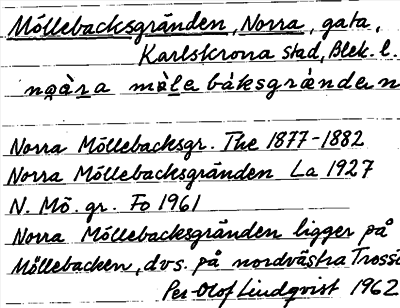 Möllebacksgränden, Norra, gata,
Karlskrona stad, Blek. l.
nọ̀ra mø̀lebáksgrǽnden
Norra Möllebacksgr. The 1877-1882
Norra Möllebacksgränden La 1927
N. Mö. gr. Fo 1961
Norra Möllebacksgränden ligger på
Möllebacken, dvs. på nordvästra Trossö
Per-Olof Lindqvist 1962